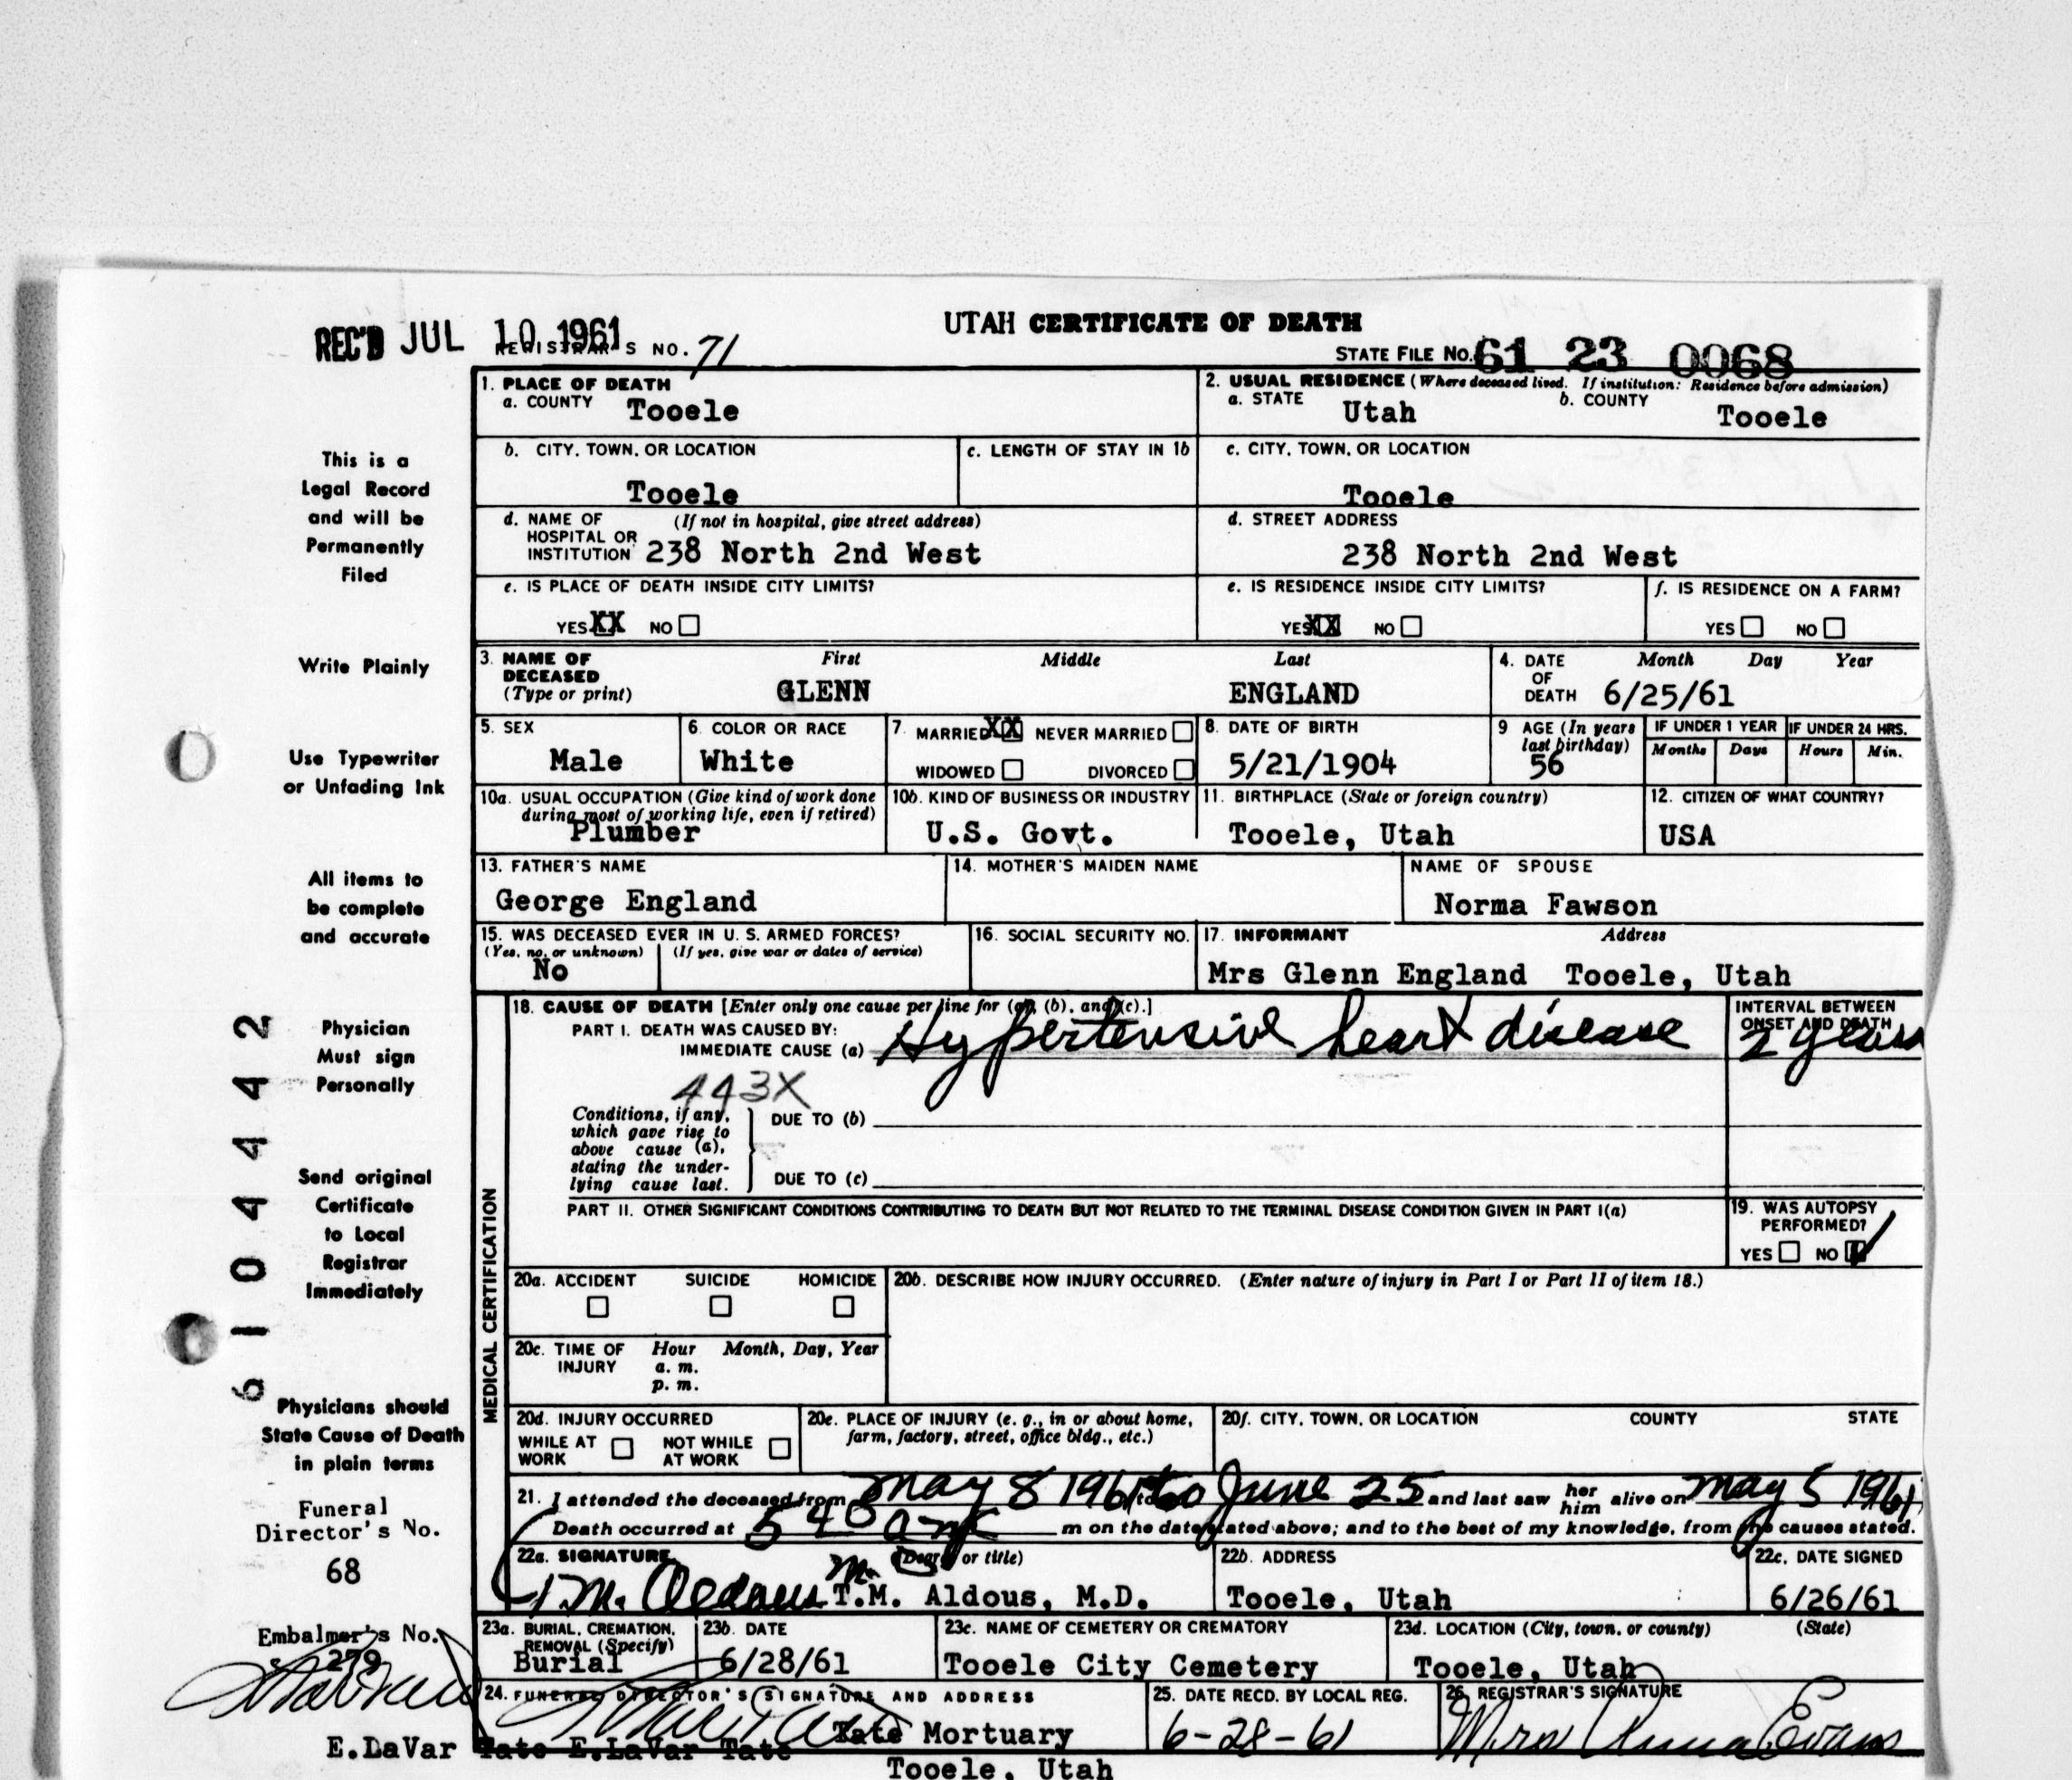 UTAH CERTIFICATE OF DEATH
REC'D JUL 10 1961
REGISTRAR'S NO. 71
STATE FILE NO. 61 23 0068
1. PLACE OF DEATH
a. COUNTY Tooele
2. USUAL RESIDENCE (Where deceased lived. If institution: Residence before admission)
a. STATE Utah b. COUNTY Tooele
b. CITY, TOWN, OR LOCATION
Tooele
c. LENGTH OF STAY IN 1b
c. CITY, TOWN, OR LOCATION
Tooele
d. NAME OF HOSPITAL OR INSTITUTION (If not in hospital, give street address)
238 North 2nd West
d. STREET ADDRESS
238 North 2nd West
e. IS PLACE OF DEATH INSIDE CITY LIMITS?
YES XX NO
e. IS RESIDENCE INSIDE CITY LIMITS?
YES XX NO
f. IS RESIDENCE ON A FARM?
YES NO
3. NAME OF DECEASED (Type or print)
First Middle Last
GLENN ENGLAND
4. DATE OF DEATH Month Day Year
6/25/61
5. SEX
Male
6. COLOR OR RACE
White
7. MARRIED XX NEVER MARRIED
WIDOWED DIVORCED
8. DATE OF BIRTH
5/21/1904
9 AGE (In years last birthday)
56
IF UNDER 1 YEAR
Months Days
IF UNDER 24 HRS.
Hours Min.
10a. USUAL OCCUPATION (Give kind of work done during most of working life, even if retired)
Plumber
10b. KIND OF BUSINESS OR INDUSTRY
U.S. Govt.
11. BIRTHPLACE (State or foreign country)
Tooele, Utah
12. CITIZEN OF WHAT COUNTRY?
USA
13. FATHER'S NAME
George England
14. MOTHER'S MAIDEN NAME
NAME OF SPOUSE
Norma Fawson
15. WAS DECEASED EVER IN U. S. ARMED FORCES?
(Yes, no, or unknown) (If yes, give war or dates of service)
No
16. SOCIAL SECURITY NO.
17. INFORMANT Address
Mrs Glenn England Tooele, Utah
MEDICAL CERTIFICATION
18. CAUSE OF DEATH [Enter only one cause per line for (a), (b), and (c).]
PART I. DEATH WAS CAUSED BY:
IMMEDIATE CAUSE (a) Hypertensive heart disease
INTERVAL BETWEEN ONSET AND DEATH
2 years
443X
Conditions, if any, which gave rise to above cause (a), stating the underlying cause last.
DUE TO (b)
DUE TO (c)
PART II. OTHER SIGNIFICANT CONDITIONS CONTRIBUTING TO DEATH BUT NOT RELATED TO THE TERMINAL DISEASE CONDITION GIVEN IN PART I(a)
19. WAS AUTOPSY PERFORMED?
YES NO
20a. ACCIDENT SUICIDE HOMICIDE
20b. DESCRIBE HOW INJURY OCCURRED. (Enter nature of injury in Part I or Part II of item 18.)
20c. TIME OF INJURY Hour Month, Day, Year
a. m.
p. m.
20d. INJURY OCCURRED
WHILE AT WORK NOT WHILE AT WORK
20e. PLACE OF INJURY (e. g., in or about home, farm, factory, street, office bldg., etc.)
20f. CITY, TOWN, OR LOCATION COUNTY STATE
21. I attended the deceased from May 8 1961 to June 25 and last saw her him alive on May 5 1961
Death occurred at 5 40 a m on the date stated above; and to the best of my knowledge, from the causes stated.
22a. SIGNATURE (Degree or title)
T.M. Aldous M.D.
T.M. Aldous, M.D.
22b. ADDRESS
Tooele, Utah
22c. DATE SIGNED
6/26/61
23a. BURIAL, CREMATION, REMOVAL (Specify)
Burial
23b. DATE
6/28/61
23c. NAME OF CEMETERY OR CREMATORY
Tooele City Cemetery
23d. LOCATION (City, town, or county) (State)
Tooele, Utah
24. FUNERAL DIRECTOR'S SIGNATURE AND ADDRESS
Tate Mortuary
E.LaVar Tate E.LaVar Tate
Tooele, Utah
25. DATE RECD. BY LOCAL REG.
6-28-61
26. REGISTRAR'S SIGNATURE
Mrs Anna Evans
This is a
Legal Record
and will be
Permanently
Filed
Write Plainly
Use Typewriter
or Unfading Ink
All items to
be complete
and accurate
Physician
Must sign
Personally
Send original
Certificate
to Local
Registrar
Immediately
Physicians should
State Cause of Death
in plain terms
Funeral
Director's No.
68
Embalmer's No.
279
6104442